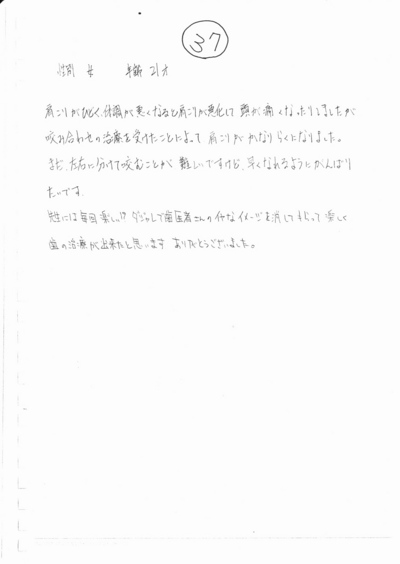 37
性別 女 年齢 21才
肩こりがひどく、体調が悪くなると肩こりが悪化して 頭が痛くなったりしましたが
咬み合わせの治療を受けたことによって 肩こりが かなりらくになりました。
まだ、左右に分けて咬むことが 難しいですけど、早くなれるようにがんばり
たいです。
先生には毎回楽しい!? ダジャレで歯医者さんのイヤなイメージを消してもらって 楽しく
歯の治療が出来たと思います ありがとうございました。